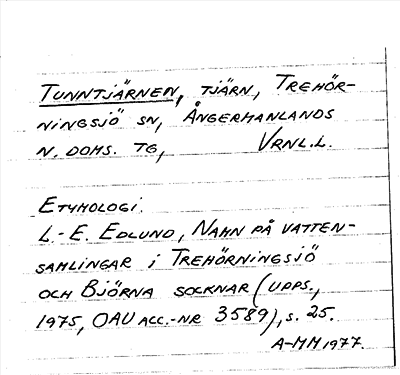 TUNNTJÄRNEN, TJÄRN, TREHÖR-
NINGSJÖ SN, ÅNGERMANLANDS
N. DOMS. TG, VRNL.L.
ETYMOLOGI.
L.-E. EDLUND, NAMN PÅ VATTEN-
SAMLINGAR I TREHÖRNINGSJÖ
OCH BJÖRNA SOCKNAR (UPPS.,
1975, OAU ACC.-NR 3589), S. 25.
A-MM 1977.